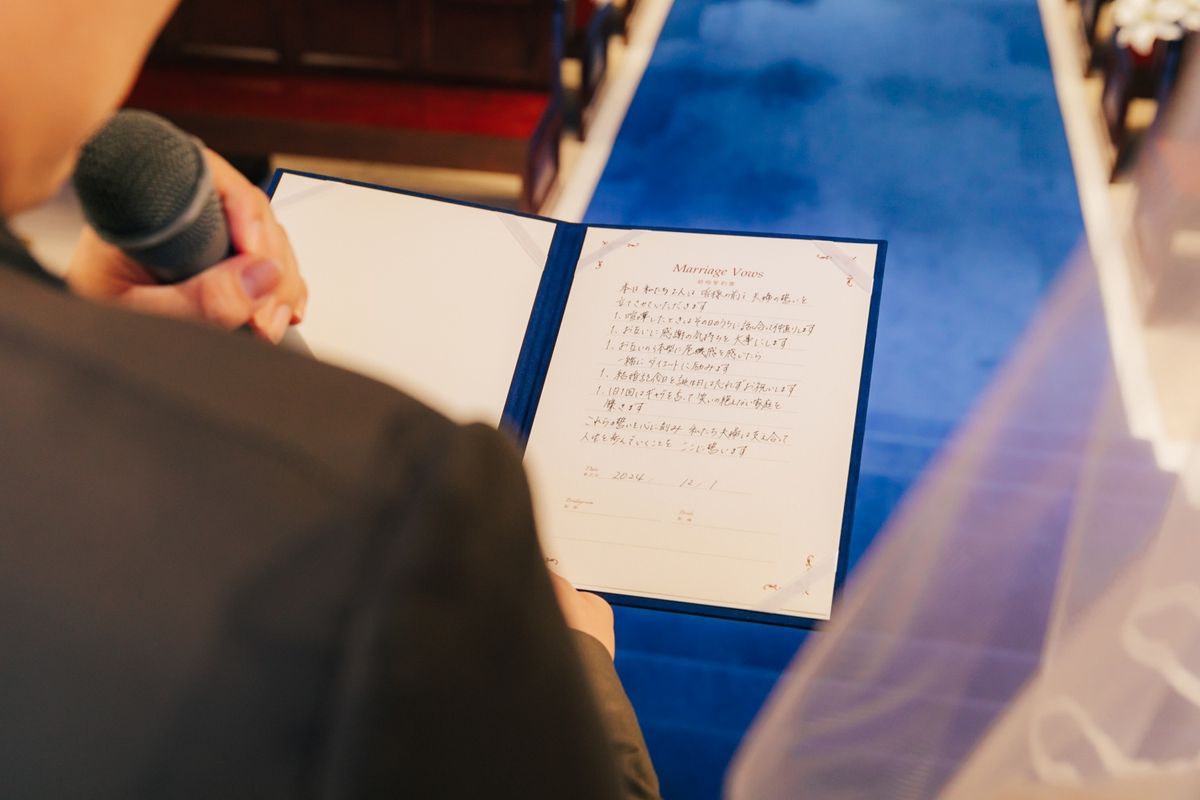 Marriage Vows
結婚誓約書
本日 私たち2人は 皆様の前で 夫婦の誓いを
立てさせていただきます
1、喧嘩したときはその日のうちに話し合って仲直りします
1、お互いに感謝の気持ちを大事にします
1、お互いの体型に危機感を感じたら
一緒にダイエットに励みます
1、結婚記念日と誕生日は忘れずお祝いします
1、1日1回はギャグを言って笑いの絶えない家庭を
築きます
これらの誓いを心に刻み 私たち夫婦は支え合って
人生を歩んでいくことを ここに誓います
Date
2024 / 12 / 1
Bridegroom
Bride
新郎
新婦